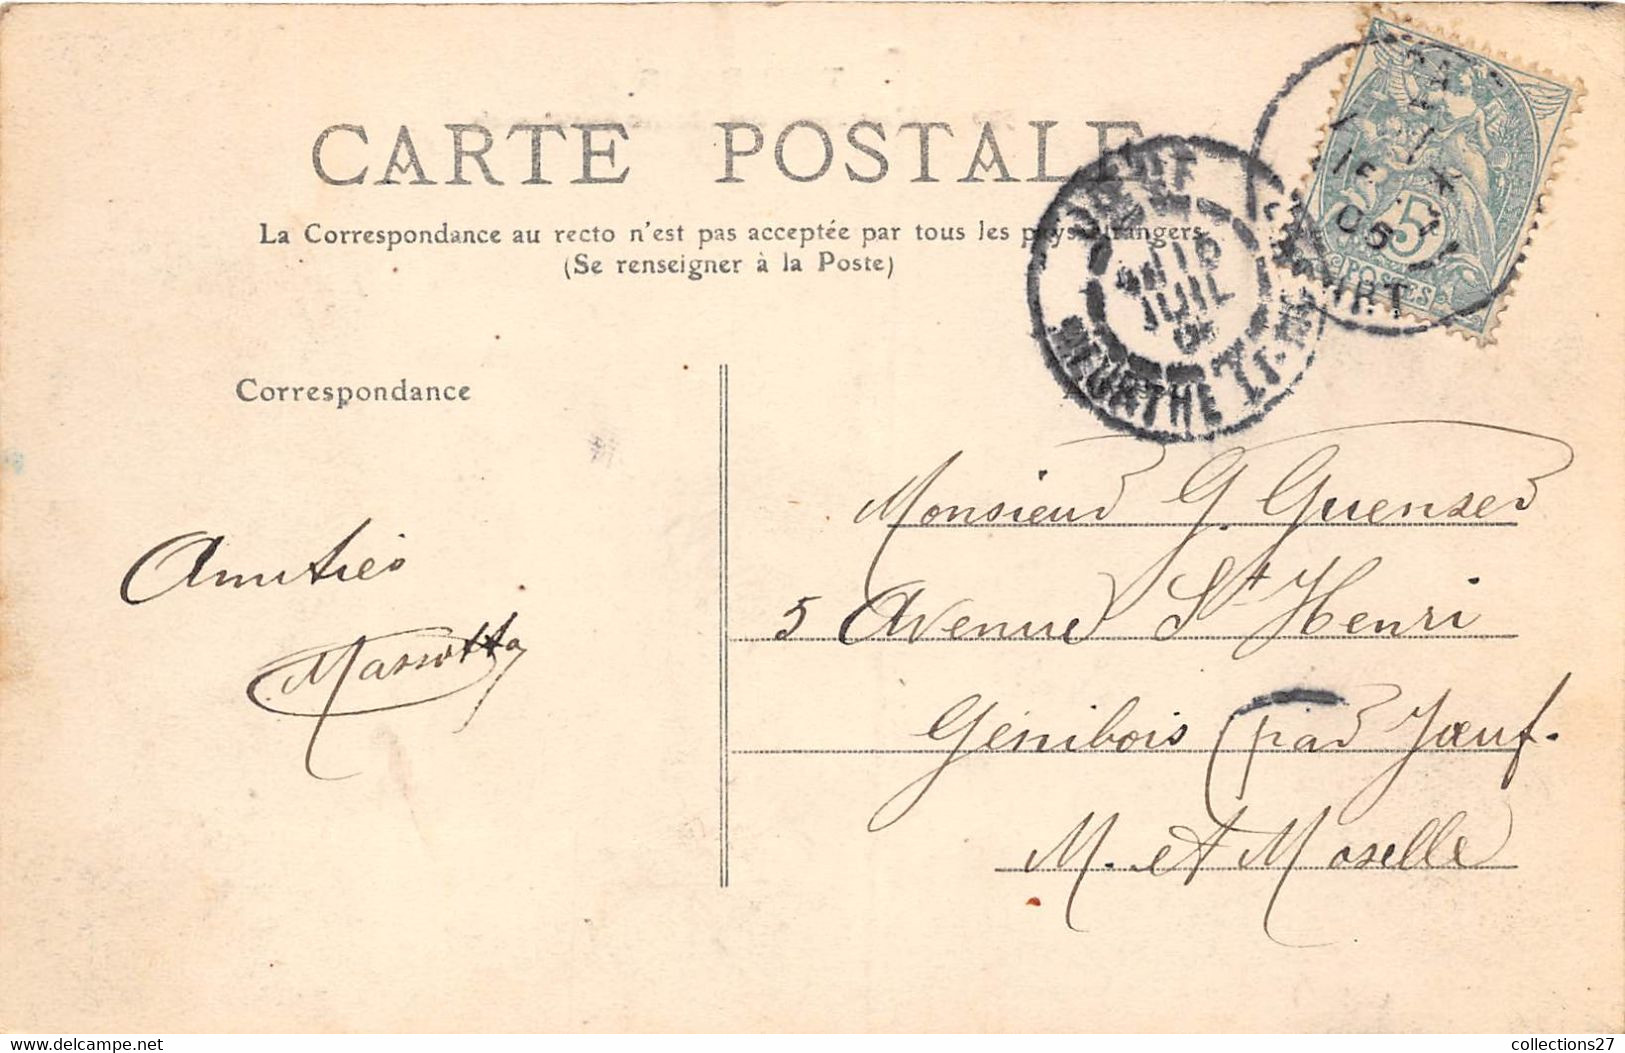 CARTE POSTALE
La Correspondance au recto n'est pas acceptée par tous les pays étrangers
(Se renseigner à la Poste)
JOEUF
16
JUIL
MEURTHE ET M
05
5
POSTES
Correspondance
Amitiés
Massotta
Monsieur G. Guenser
5 Avenue St Henri
Génibois (par Jœuf.
M. et Moselle
delcampe.net
collections27